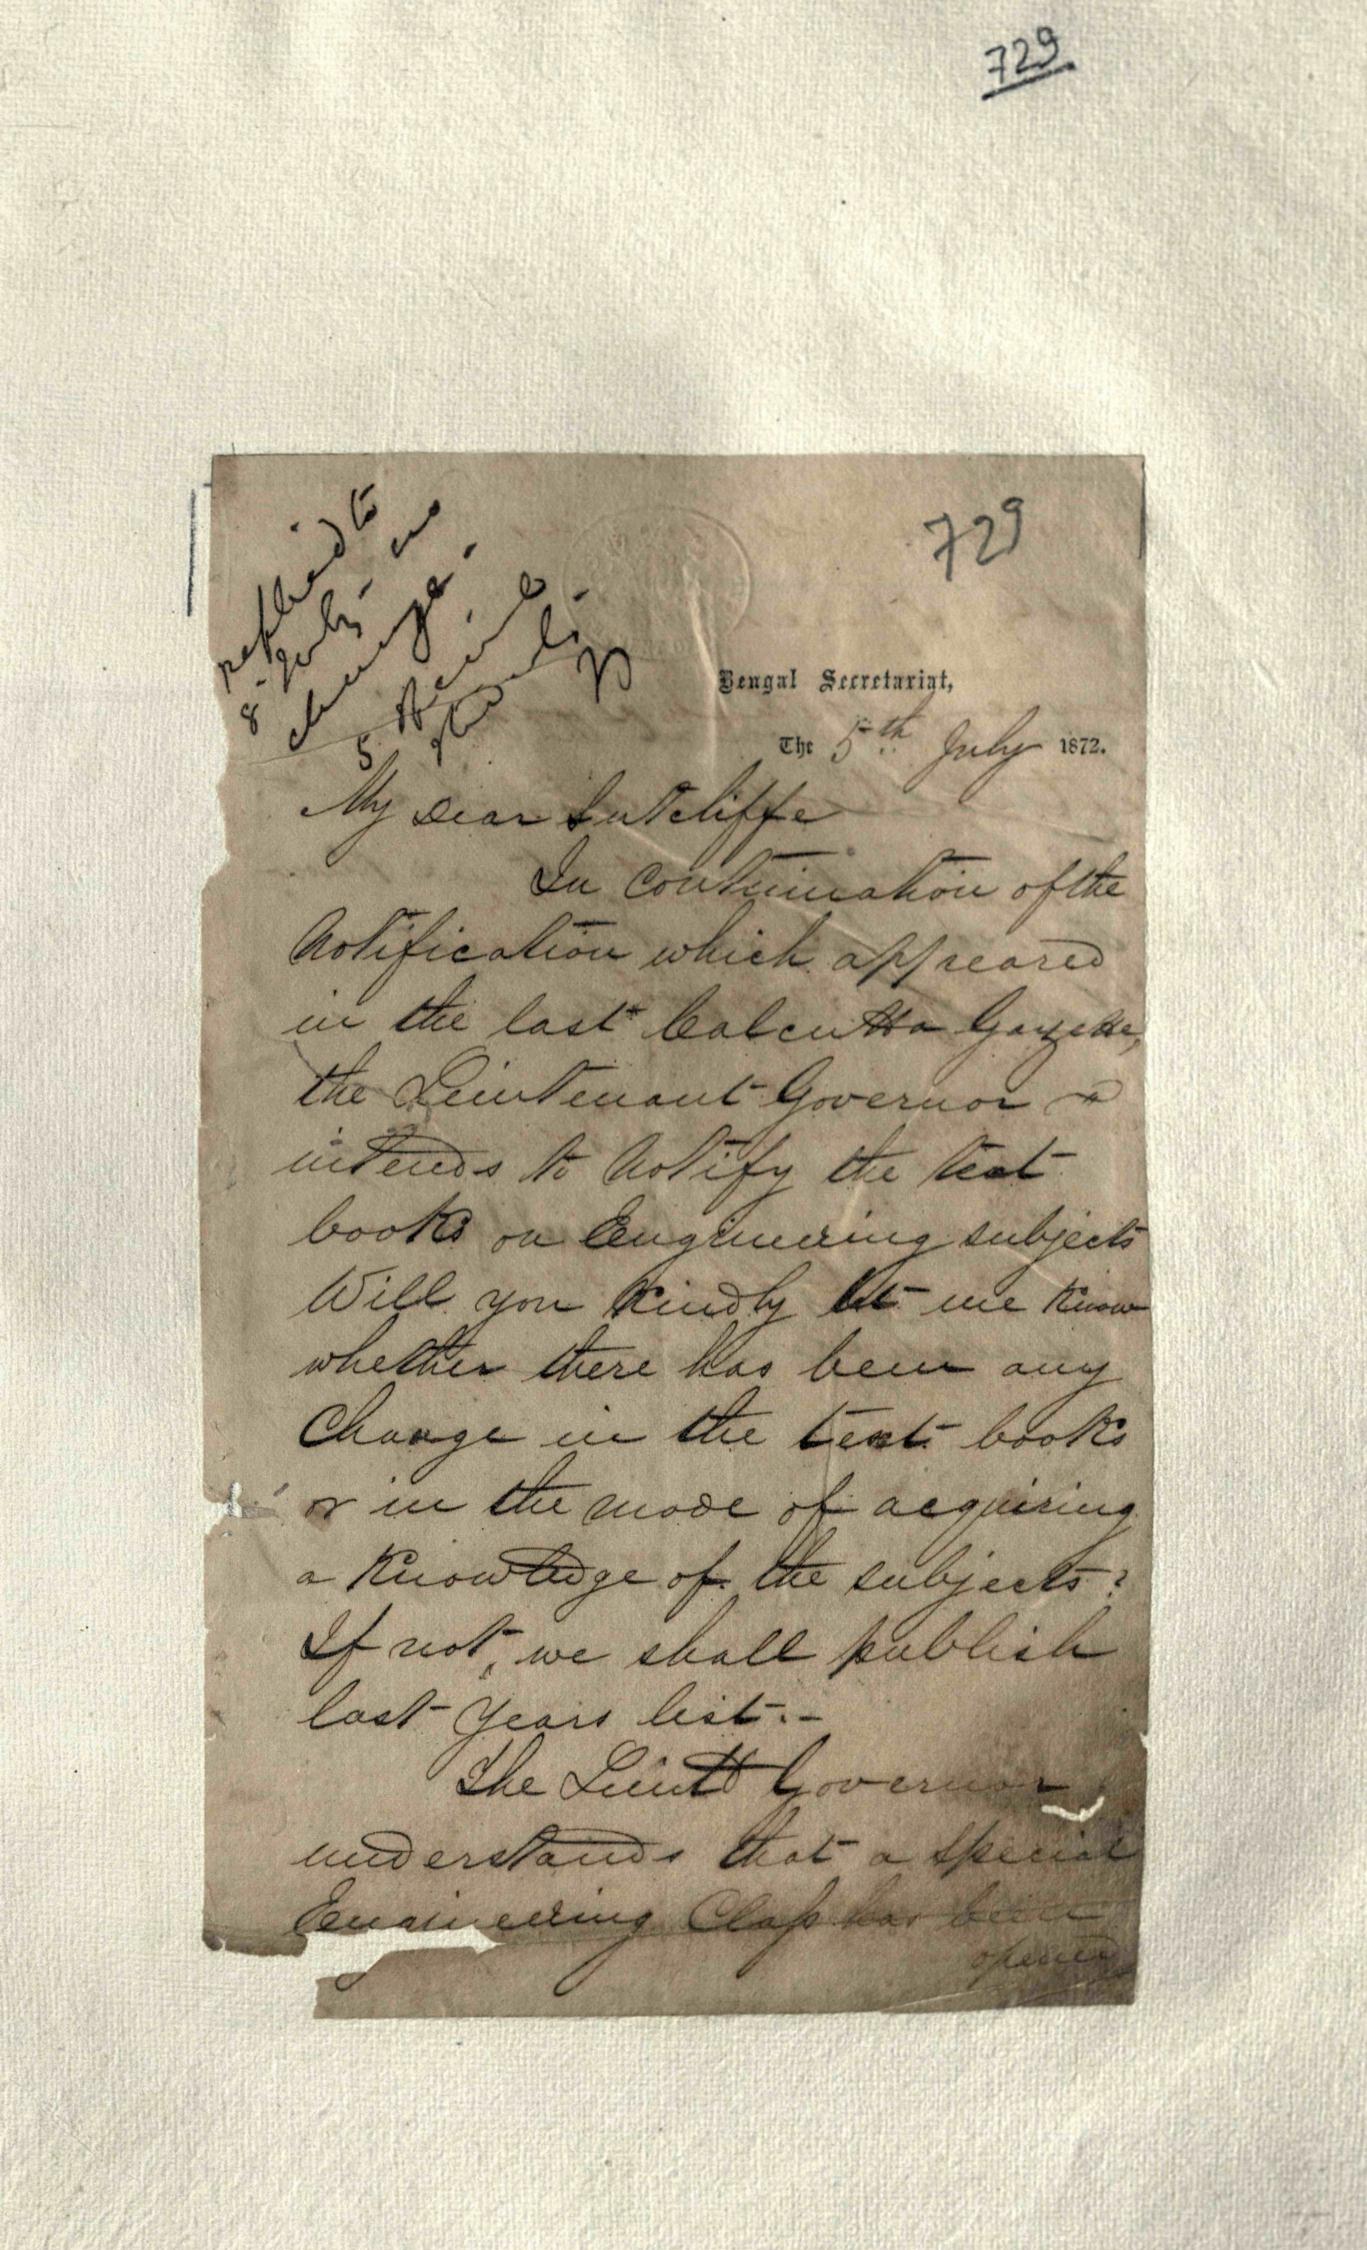 729
729
replied to
8 July - no
change.
5
Bengal Secretariat,
The 5th July 1872.
My Dear Sutcliffe
In continuation of the
Notification which appeared
in the last Calcutta Gazette,
the Lieutenant Governor
intends to notify the text
books on Engineering subjects
Will you kindly let me know
whether there has been any
Change in the text books
or in the mode of acquiring
a knowledge of the subjects?
If not, we shall publish
last years list.-
The Lieutt Governor
understands that a special
Engineering Class has been
opened